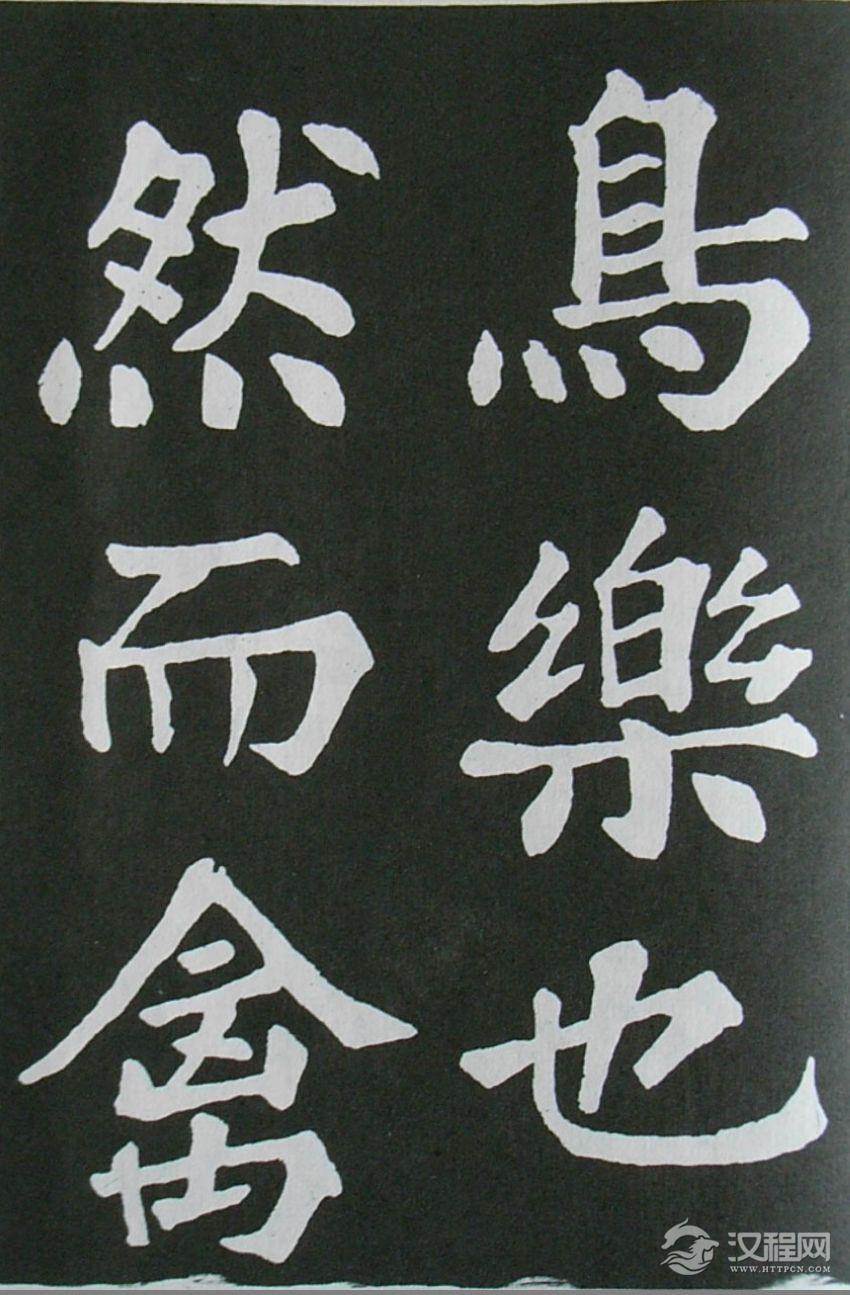 鳥樂也
然而禽
汉程网
WWW.HTTPCN.COM